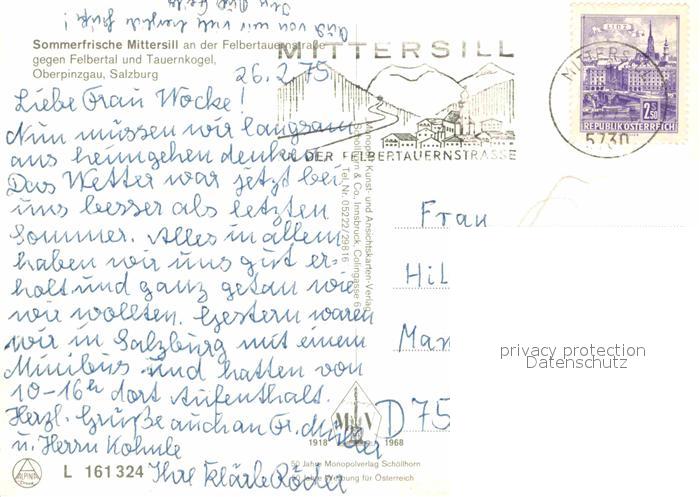 Auch von mir recht herzlich Grüße !
Sommerfrische Mittersill an der Felbertauernstraße
gegen Felbertal und Tauernkogel,
Oberpinzgau, Salzburg
MITTERSILL
AN DER FELBERTAUERNSTRASSE
LINZ
2.50
REPUBLIK ÖSTERREICH
MITTERSILL
5730
26.2.75
Liebe Frau Wocke!
Nun müssen wir langsam
ans heimgehen denken.
Das Wetter war jetzt bei
uns besser als letzten
Sommer. Alles in allem
haben wir uns gut er-
holt und ganz getan wie
wir wollten. Gestern waren
wir in Salzburg mit einem
Minibus und hatten von
10-16h dort Aufenthalt.
Herzl. Grüße auch an Fr. Müller
u. Herrn Kohnle
Ihre Klärle Röder
Monopol Kunst- und Ansichtskarten-Verlag
Schöllhorn & Co., Innsbruck, Colingasse 6
Tel. Nr. 05222/29816
Frau
Hil
Man
D 75
privacy protection
Datenschutz
1918 1968
50 Jahre Monopolverlag Schöllhorn
50 Jahre Werbung für Österreich
ALPINA
L 161 324